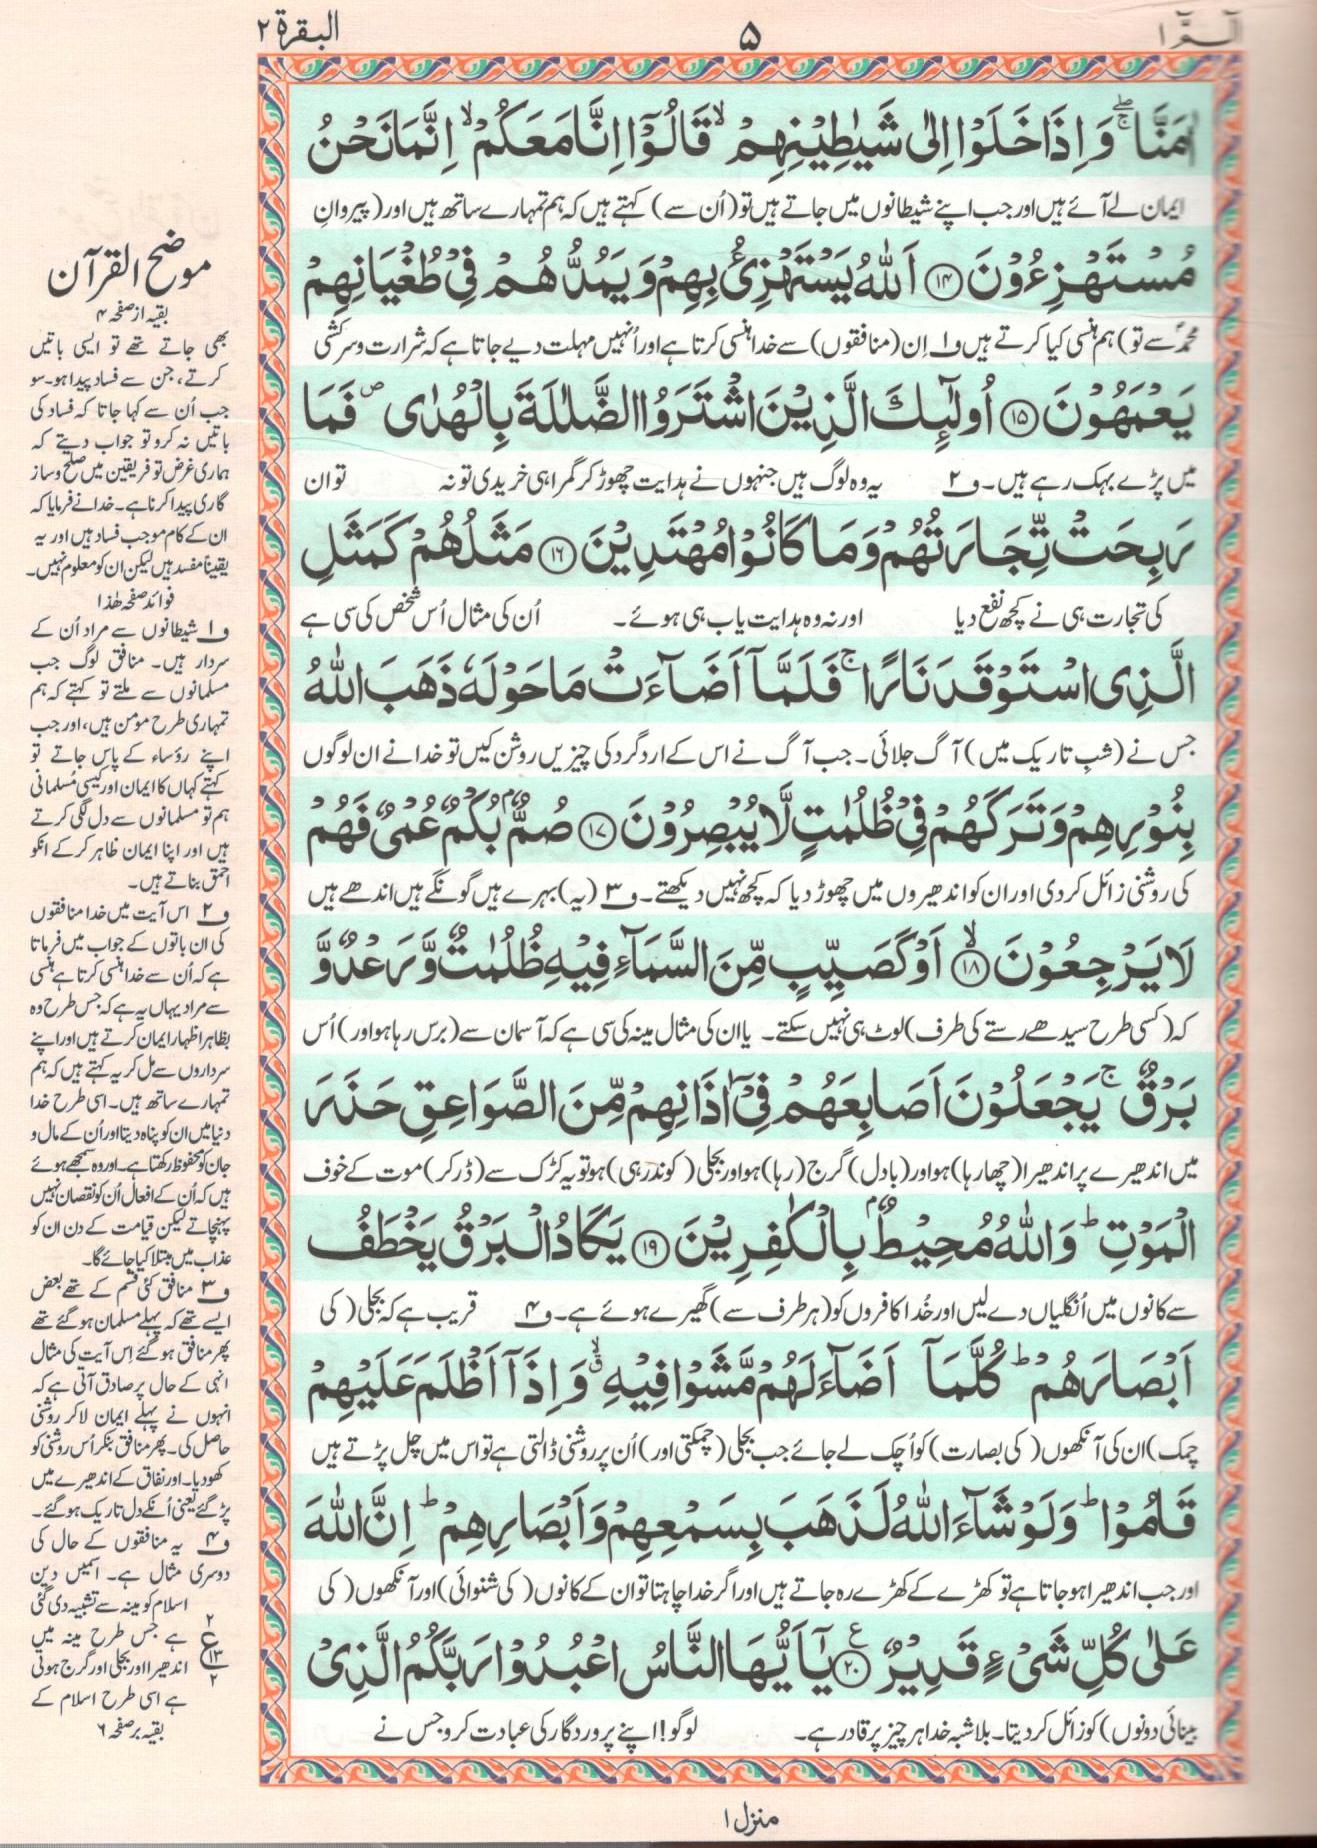 الٓـمّٓ ۱
۵
البقرة ۲
اٰمَنَّا ۚۖ وَاِذَا خَلَوْا اِلٰى شَيٰطِيْنِهِمْ ۙ قَالُوْٓا اِنَّا مَعَكُمْ ۙ اِنَّمَا نَحْنُ
ایمان لے آئے ہیں اور جب اپنے شیطانوں میں جاتے ہیں تو (اُن سے) کہتے ہیں کہ ہم تمہارے ساتھ ہیں اور (پیروانِ
مُسْتَهْزِءُوْنَ ۱۴ اَللّٰهُ يَسْتَهْزِئُ بِهِمْ وَيَمُدُّهُمْ فِيْ طُغْيَانِهِمْ
محمدؐ سے تو) ہم ہنسی کیا کرتے ہیں ف۱ اِن (منافقوں) سے خدا ہنسی کرتا ہے اور اُنہیں مہلت دیے جاتا ہے کہ شرارت و سرکشی
يَعْمَهُوْنَ ۱۵ اُولٰٓئِكَ الَّذِيْنَ اشْتَرَوُا الضَّلٰلَةَ بِالْهُدٰى ۪ فَمَا
میں پڑے بہک رہے ہیں۔ ف۲ یہ وہ لوگ ہیں جنہوں نے ہدایت چھوڑ کر گمراہی خریدی تو نہ تو ان
رَبِحَتْ تِّجَارَتُهُمْ وَمَا كَانُوْا مُهْتَدِيْنَ ۱۶ مَثَلُهُمْ كَمَثَلِ
کی تجارت ہی نے کچھ نفع دیا اور نہ وہ ہدایت یاب ہی ہوئے۔ اُن کی مثال اُس شخص کی سی ہے
الَّذِى اسْتَوْقَدَ نَارًا ۚ فَلَمَّآ اَضَآءَتْ مَا حَوْلَهٗ ذَهَبَ اللّٰهُ
جس نے (شبِ تاریک میں) آگ جلائی۔ جب آگ نے اس کے ارد گرد کی چیزیں روشن کیں تو خدا نے ان لوگوں
بِنُوْرِهِمْ وَتَرَكَهُمْ فِيْ ظُلُمٰتٍ لَّا يُبْصِرُوْنَ ۱۷ صُمٌّۢ بُكْمٌ عُمْىٌ فَهُمْ
کی روشنی زائل کردی اور ان کو اندھیروں میں چھوڑ دیا کہ کچھ نہیں دیکھتے۔ ف۳ (یہ) بہرے ہیں گونگے ہیں اندھے ہیں
لَا يَرْجِعُوْنَ ۙ۱۸ اَوْ كَصَيِّبٍ مِّنَ السَّمَآءِ فِيْهِ ظُلُمٰتٌ وَّرَعْدٌ وَّ
کہ (کسی طرح سیدھے رستے کی طرف) لوٹ ہی نہیں سکتے۔ یا ان کی مثال مینہ کی سی ہے کہ آسمان سے (برس رہا ہو اور) اُس
بَرْقٌ ۚ يَجْعَلُوْنَ اَصَابِعَهُمْ فِيْٓ اٰذَانِهِمْ مِّنَ الصَّوَاعِقِ حَذَرَ
میں اندھیرے پر اندھیرا (چھا رہا) ہو اور (بادل) گرج (رہا) ہو اور بجلی (کوند رہی) ہو تو یہ کڑک سے (ڈر کر) موت کے خوف
الْمَوْتِ ؕ وَاللّٰهُ مُحِيْطٌۢ بِالْكٰفِرِيْنَ ۱۹ يَكَادُ الْبَرْقُ يَخْطَفُ
سے کانوں میں اُنگلیاں دے لیں اور خُدا کافروں کو (ہر طرف سے) گھیرے ہوئے ہے۔ ف۴ قریب ہے کہ بجلی (کی
اَبْصَارَهُمْ ؕ كُلَّمَآ اَضَآءَ لَهُمْ مَّشَوْا فِيْهِ ۙۗ وَاِذَآ اَظْلَمَ عَلَيْهِمْ
چمک) ان کی آنکھوں (کی بصارت) کو اُچک لے جائے جب بجلی (چمکتی اور) اُن پر روشنی ڈالتی ہے تو اس میں چل پڑتے ہیں
قَامُوْا ؕ وَلَوْ شَآءَ اللّٰهُ لَذَهَبَ بِسَمْعِهِمْ وَاَبْصَارِهِمْ ؕ اِنَّ اللّٰهَ
اور جب اندھیرا ہو جاتا ہے تو کھڑے کے کھڑے رہ جاتے ہیں اور اگر خدا چاہتا تو ان کے کانوں (کی شنوائی) اور آنکھوں (کی
عَلٰى كُلِّ شَىْءٍ قَدِيْرٌ ۲۰ ع يٰٓاَيُّهَا النَّاسُ اعْبُدُوْا رَبَّكُمُ الَّذِىْ
بینائی دونوں) کو زائل کر دیتا۔ بلا شبہ خدا ہر چیز پر قادر ہے۔ لوگو! اپنے پروردگار کی عبادت کرو جس نے
موضح القرآن
بقیہ از صفحہ ۴
بھی جاتے تھے تو ایسی باتیں
کرتے، جن سے فساد پیدا ہو۔ سو
جب اُن سے کہا جاتا کہ فساد کی
باتیں نہ کرو تو جواب دیتے کہ
ہماری غرض تو فریقین میں صلح و ساز
گاری پیدا کرنا ہے۔ خدا نے فرمایا کہ
ان کے کام موجب فساد ہیں اور یہ
یقیناً مفسد ہیں لیکن ان کو معلوم نہیں۔
فوائد صفحہ ھٰذا
ف۱ شیطانوں سے مراد اُن کے
سردار ہیں۔ منافق لوگ جب
مسلمانوں سے ملتے تو کہتے کہ ہم
تمہاری طرح مومن ہیں، اور جب
اپنے رؤساء کے پاس جاتے تو
کہتے کہاں کا ایمان اور کیسی مُسلمانی
ہم تو مسلمانوں سے دل لگی کرتے
ہیں اور اپنا ایمان ظاہر کرکے انکو
احمق بناتے ہیں۔
ف۲ اس آیت میں خدا منافقوں
کی ان باتوں کے جواب میں فرماتا
ہے کہ اُن سے خدا ہنسی کرتا ہے ہنسی
سے مراد یہاں یہ ہے کہ جس طرح وہ
بظاہر اظہار ایمان کرتے ہیں اور اپنے
سرداروں سے مل کر یہ کہتے ہیں کہ ہم
تمہارے ساتھ ہیں۔ اسی طرح خدا
دنیا میں ان کو پناہ دیتا اور اُن کے مال و
جان کو محفوظ رکھتا ہے۔ اور وہ سمجھے ہوئے
ہیں کہ اُن کے افعال اُن کو نقصان نہیں
پہنچاتے لیکن قیامت کے دن ان کو
عذاب میں مبتلا کیا جائے گا۔
ف۳ منافق کئی قسم کے تھے بعض
ایسے تھے کہ پہلے مسلمان ہو گئے تھے
پھر منافق ہو گئے اِس آیت کی مثال
انہی کے حال پر صادق آتی ہے کہ
انہوں نے پہلے ایمان لا کر روشنی
حاصل کی۔ پھر منافق بنکر اُس روشنی کو
کھو دیا۔ اور نفاق کے اندھیرے میں
پڑ گئے یعنی اُنکے دل تاریک ہو گئے۔
ف۴ یہ منافقوں کے حال کی
دوسری مثال ہے۔ اسمیں دین
اسلام کو مینہ سے تشبیہ دی گئی
ہے جس طرح مینہ میں
اندھیرا اور بجلی اور گرج ہوتی
ہے اسی طرح اسلام کے
بقیہ بر صفحہ ۶
۲
ع
۱۳
۲
منزل ۱